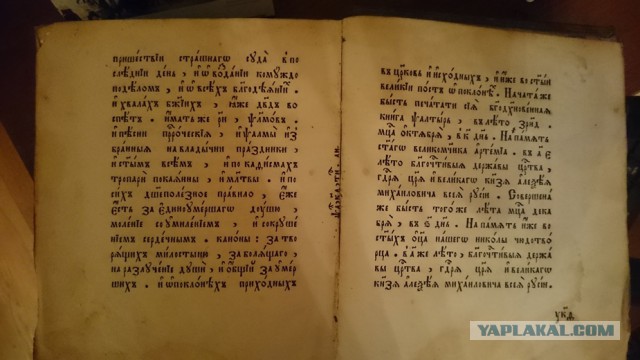 пришествїи страшнагѡ сꙋда̀ в̾по
слѣднїи де́нь, и҆ ѡ҆ во́з̾данїи комꙋждо
подѣломъ, и҆ ѡ҆ всѣ́хъ бл҃годѣѧ́нїи.
и҆ хвала́хъ бж҃їихъ, ꙗ҆́же дв҃дъ во
спѣ́тъ. и҆ мат̾же
и҆ пѣ́нїи прⷪ҇ро́ческїѧ, и҆ ѱалмы̀ и҆з̾
бра́нныѧ на влады́чни пра́здники,
и҆ ст҃ы̑мъ всѣ́мъ, и҆ по каѳи́смахъ
тропарѝ пока́ѧнны, и҆ мл҃твы. и҆ по
си́хъ дш҃еполе́зное пра́вило, є҆́же
є҆́сть за є҆ди́но ꙋ҆ме́ршаго дꙋ́шꙋ,
моле́нїе со ꙋ҆миле́нїемъ, и҆ сокрꙋше́
нїемъ серде́чнымъ. кано́ны: за тво
рѧ́щихъ ми́лостыню, за болѧ́щаго,
на разлꙋче́нїе дꙋшѝ, и҆ ѻ҆́бщїи за ꙋ҆ме́р
шихъ. и҆ ѡ҆ покло́нѣхъ прихо́дныхъ
въ цр҃ковь и҆ и҆схо́дныхъ, и҆ и҆́же во ст҃ы́и
вели́кїи по́стъ ѡ҆ покло́нѣ. Нача́та же
бы́сть печа́тати сїѧ̀ бг҃одꙋхнове́ннаѧ
кни́га ѱалты́рь, въ лѣ́то
мц҃а ѻ҆ктѧ́брѧ, въ к҃ де́нь. На па́мѧть
ст҃а́го великомч҃ника а҆рте́мїа. въ
лѣ́то бл҃гочести́выѧ держа́вы црⷭ҇тва,
гдⷭ҇рѧ цр҃ѧ̀ и҆ вели́каго кн҃зѧ а҆ле́ѯїѧ
миха́иловича всеѧ̀ рꙋсі́и. Соверше́на
же бы́сть того́же лѣ́та мц҃а дека́
брѧ, въ ѕ҃ де́нь. На па́мѧть и҆́же во
ст҃ы́хъ ѻ҆ц҃а̀ на́шегѡ нико́лы чюдотво́
рца. в̾ а҃ же лѣ́то, бл҃гочести́выѧ держа́
вы црⷭ҇тва, гдⷭ҇рѧ цр҃ѧ̀ и҆ вели́каго
кн҃зѧ а҆ле́ѯїѧ миха́иловича всеѧ̀ рꙋсі́и.
YAPLAKAL.COM